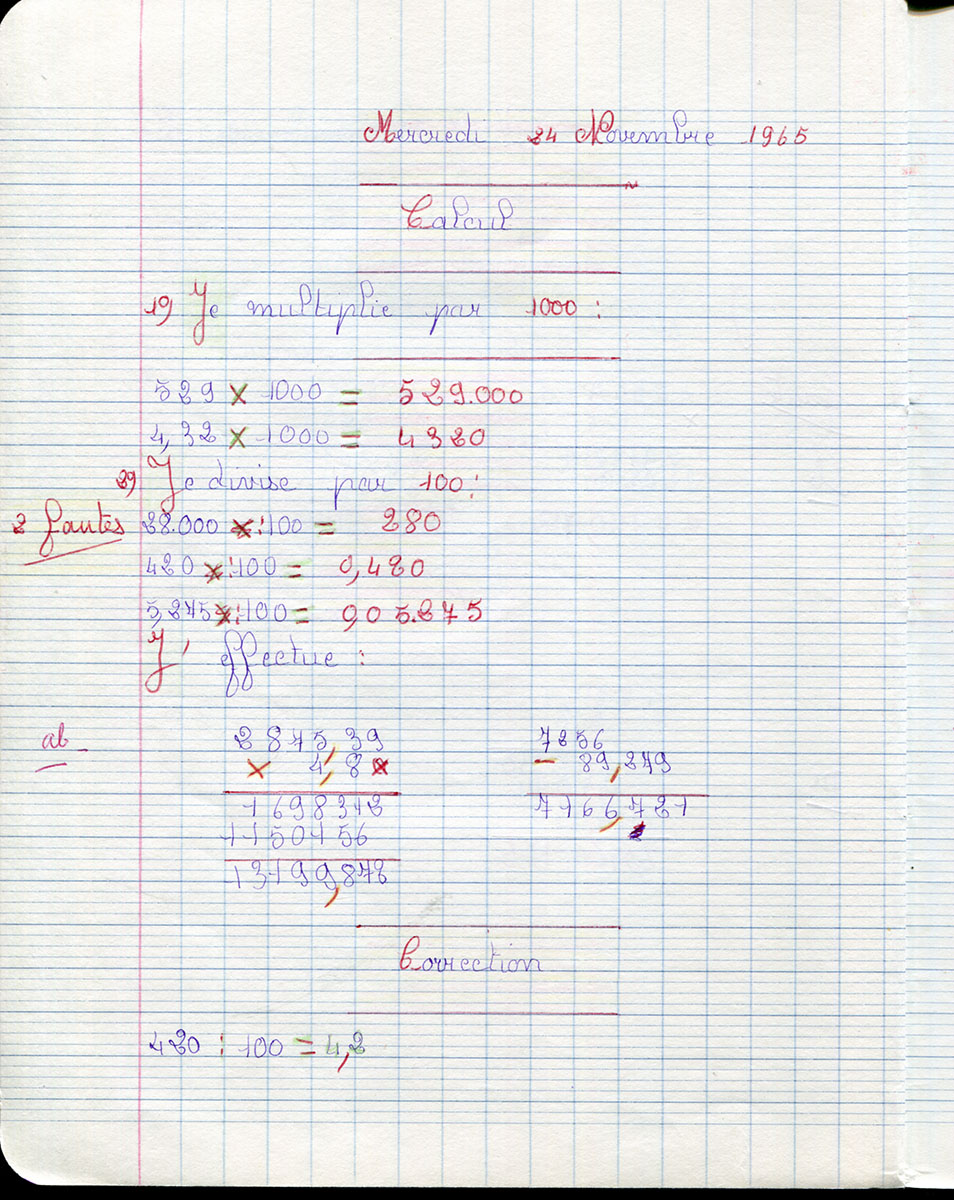 Mercredi 24 Novembre 1965
Calcul
1º) Je multiplie par 1000 :
529 × 1000 = 529.000
4,32 × 1000 = 4320
2º) Je divise par 100 :
2 fautes 28.000 : 100 = 280
420 : 100 = 0,420
5,275 : 100 = 0,05.275
J'effectue :
ab
2875,39
× 4,8
1698312
1150156
13199,872
7256
- 89,279
7166,721
Correction
420 : 100 = 4,2